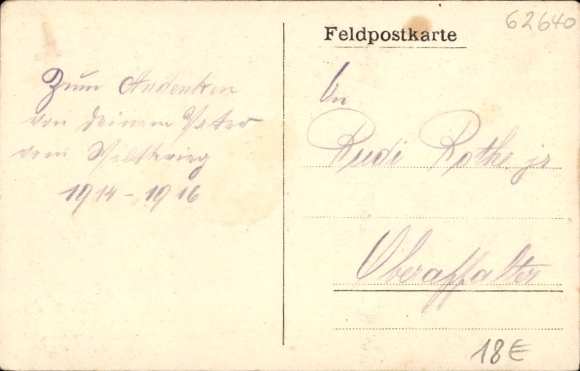 62640
Feldpostkarte
Zum Andenken
von deinem Vater
vom Weltkrieg
1914 - 1916
An
Rudi Rothe jr
Oberaffalter
18€